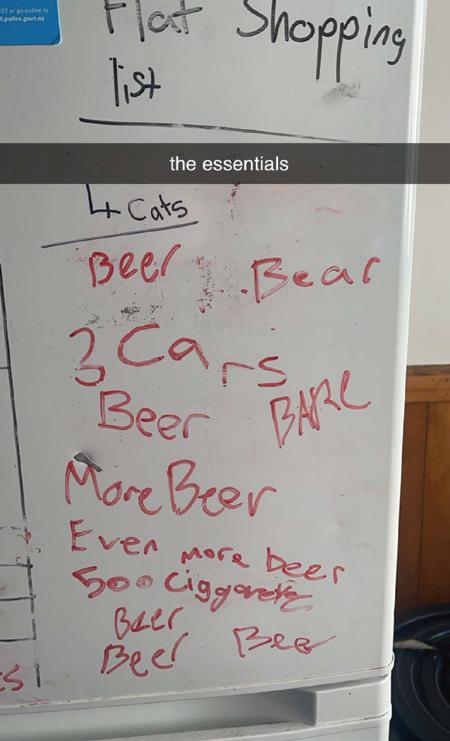 105 or go online to
5.police.govt.nz
Flat Shopping
list
the essentials
4 Cats
Beer Bear
3 Cars
Beer BARE
More Beer
Even more beer
500 Ciggarette
Beer
Beer Bee